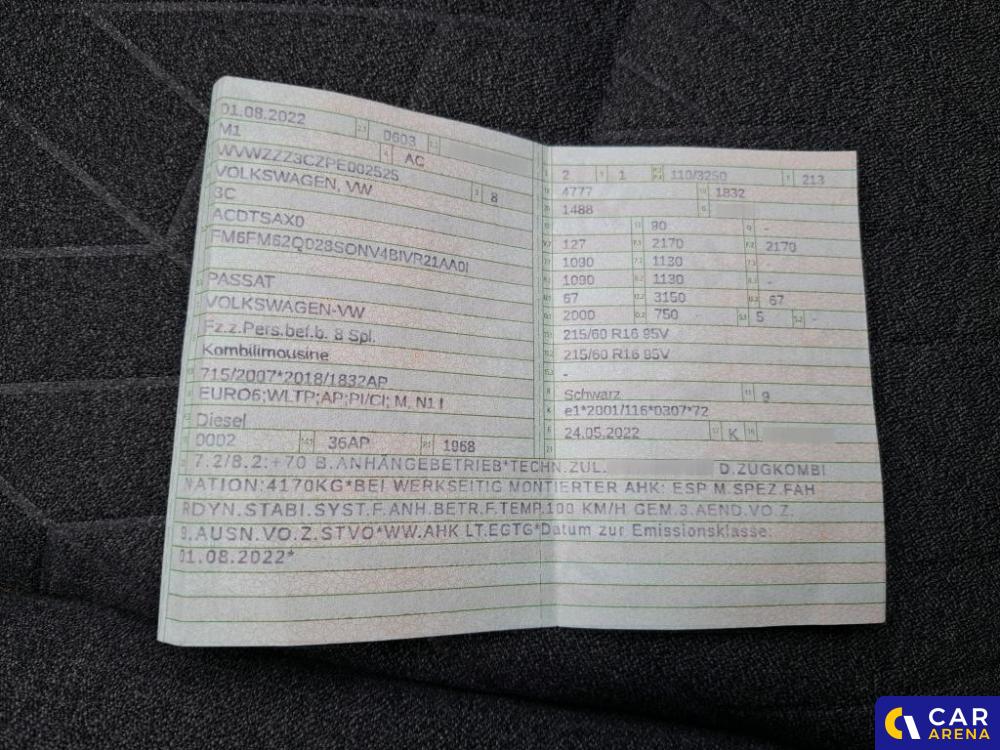 01.08.2022 0603
M1 AC
WVWZZZ3CZPE002525
VOLKSWAGEN, VW 8
3C
ACDTSAX0
FM6FM62Q028SONV4BIVR21AA0I
PASSAT
VOLKSWAGEN-VW
Fz.z.Pers.bef.b. 8 Spl.
Kombilimousine
715/2007*2018/1832AP
EURO6;WLTP;AP;PI/CI; M, N1 I
Diesel
0002 36AP 1968
2 1 110/3250 213
4777 1832
1488
90 -
127 2170 2170
1090 1130
1090 1130 -
67 3150 67
2000 750 5 -
215/60 R16 95V
215/60 R16 95V
-
Schwarz 9
e1*2001/116*0307*72
24.05.2022 K
7.2/8.2:+70 B.ANHÄNGEBETRIEB*TECHN.ZUL. D.ZUGKOMBI
NATION:4170KG*BEI WERKSEITIG MONTIERTER AHK: ESP M.SPEZ.FAH
RDYN.STABI.SYST.F.ANH.BETR.F.TEMP.100 KM/H GEM.3.AEND.VO.Z.
9.AUSN.VO.Z.STVO*WW.AHK LT.EGTG*Datum zur Emissionsklasse:
01.08.2022*
CAR
ARENA